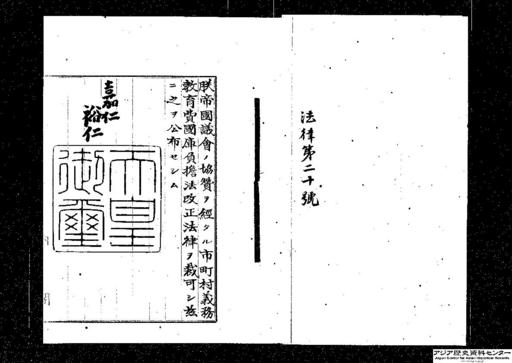 法律第二十號
朕帝國議會ノ協賛ヲ經タル市町村義務
教育費國庫負擔法改正法律ヲ裁可シ茲
ニ之ヲ公布セシム
嘉仁
裕仁
天皇
御璽
アジア歴史資料センター
Japan Center for Asian Historical Records